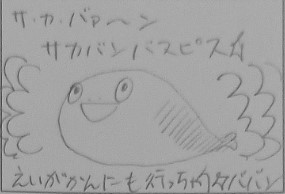 サ・カ・バァ〜ン
サカバンバスピス☆
えいがかんにも行っちゃうバババン